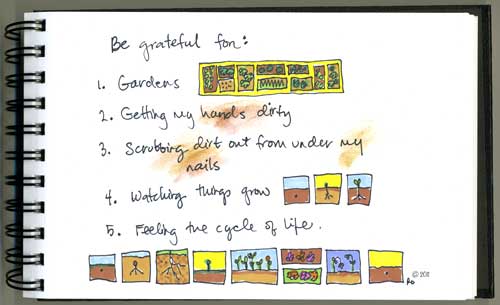 Be grateful for:
1. Gardens
2. Getting my hands dirty
3. Scrubbing dirt out from under my
nails
4. Watching things grow
5. Feeling the cycle of life.
© 2011